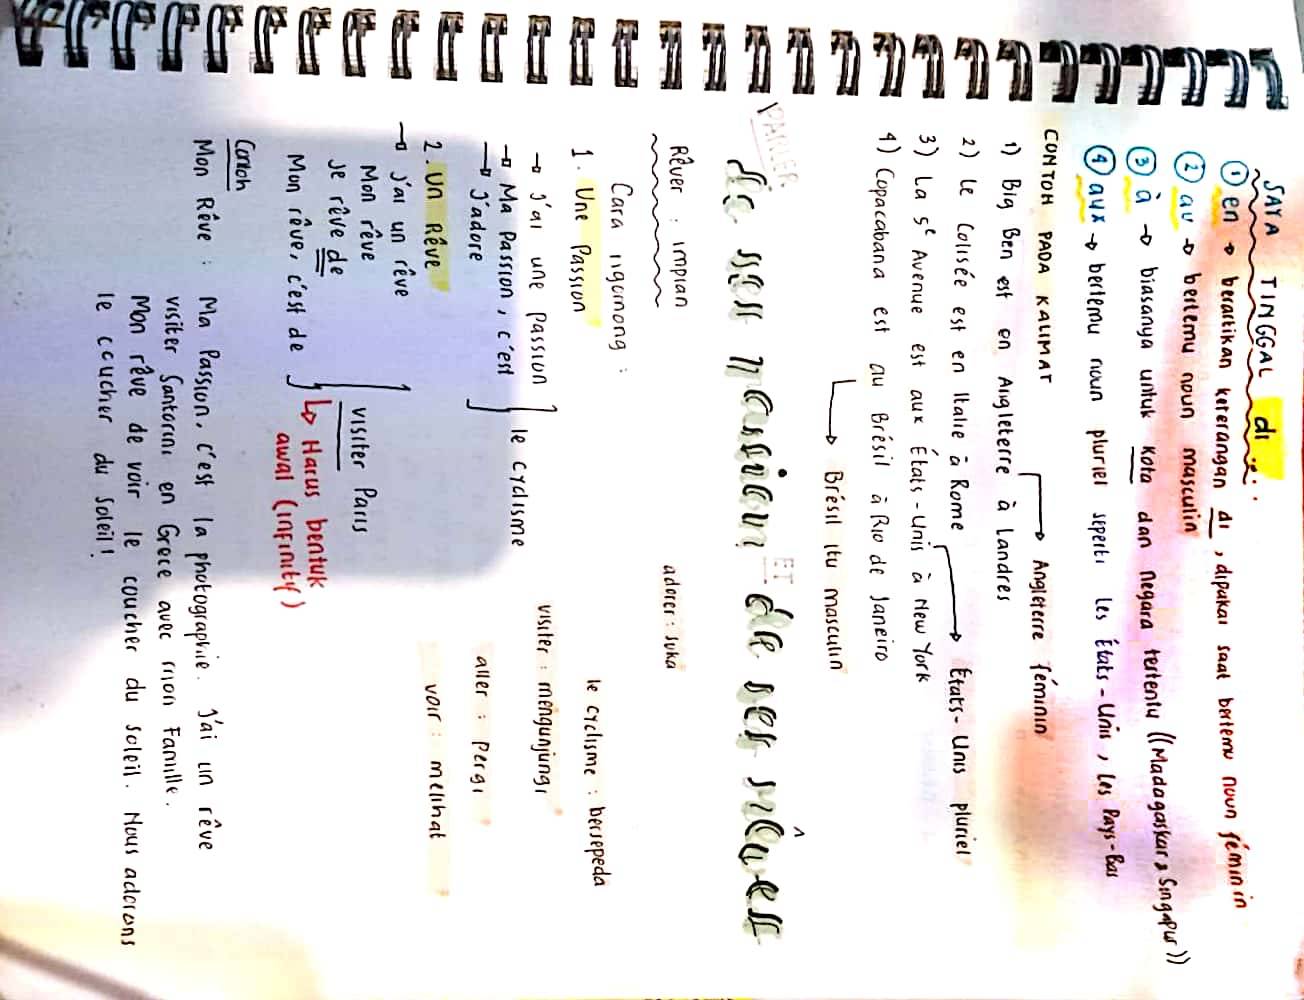 SAYA TINGGAL di ...
① en → berartikan keterangan di, dipakai saat bertemu noun féminin
② au → bertemu noun masculin
③ à → biasanya untuk kota dan negara tertentu ((Madagaskar, Singapur))
④ aux → bertemu noun pluriel seperti les États-Unis, les Pays-Bas
CONTOH PADA KALIMAT
Angleterre féminin
1) Big Ben est en Angleterre à Landres
2) Le Colisée est en Italie à Rome
États-Unis pluriel
3) La 5e Avenue est aux États-Unis à New York
4) Copacabana est au Brésil à Rio de Janeiro
Brésil itu masculin
PARLER
de ses passion ET de ses rêves
Rêver : impian
adorer : suka
Cara ngomong :
le cyclisme : bersepeda
1. Une Passion
→ J'ai une passion
→ Ma Passion, c'est
→ J'adore
le cyclisme
visiter : mengunjungi
aller : pergi
voir : melihat
2. Un Rêve
→ J'ai un rêve
Mon rêve
Je rêve de
Mon rêve, c'est de
visiter Paris
↳ Harus bentuk
awal (infinitif)
Contoh
Mon Rêve : Ma Passion, c'est la photographie. J'ai un rêve
visiter Santorini en Grece avec mon Famille.
Mon rêve de voir le coucher du soleil. Nous adorons
le coucher du soleil!